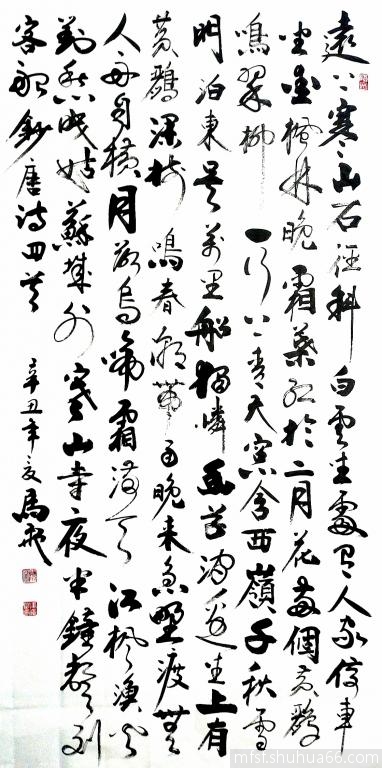 遠上寒山石徑斜白雲生處有人家停車
坐愛楓林晚霜葉紅於二月花兩個黃鸝
鳴翠柳一行上青天窗含西嶺千秋雪
門泊東吳萬里船獨憐幽草澗邊生上有
黃鸝深樹鳴春潮帶雨晚來急野渡無
人舟自橫月落烏啼霜滿天江楓漁火
對愁眠姑蘇城外寒山寺夜半鐘聲到
客船鈔唐詩四首辛丑年夏馬
misi.shuhua66.com